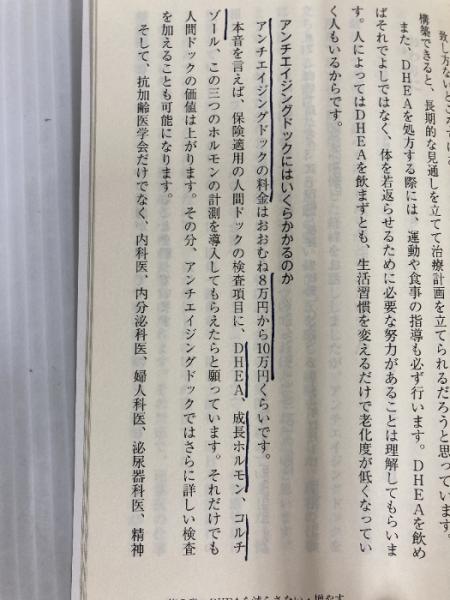 致し方ないところです。
構築できると、長期的な見通しを立てて治療計画を立てられるだろうと思っています。
また、DHEAを処方する際には、運動や食事の指導も必ず行います。DHEAを飲め
ばそれでよしではなく、体を若返らせるために必要な努力があることは理解してもらいま
す。人によってはDHEAを飲まずとも、生活習慣を変えるだけで老化度が低くなってい
く人もいるからです。
アンチエイジングドックにはいくらかかるのか
アンチエイジングドックの料金はおおむね8万円から10万円くらいです。
本音を言えば、保険適用の人間ドックの検査項目に、DHEA、成長ホルモン、コルチ
ゾール、この三つのホルモンの計測を導入してもらえたらと願っています。それだけでも
人間ドックの価値は上がります。その分、アンチエイジングドックではさらに詳しい検査
を加えることも可能になります。
そして、抗加齢医学会だけでなく、内科医、内分泌科医、婦人科医、泌尿器科医、精神